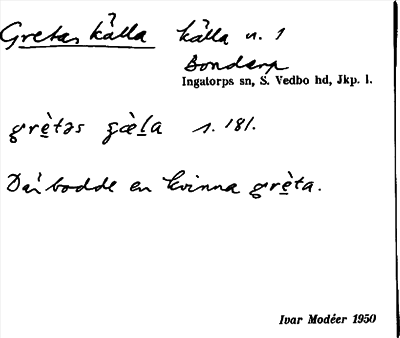 Gretas källa källa n. 1
Bondarp
Ingatorps sn, S. Vedbo hd, Jkp. l.
grè̱təs ʒæ̀ḻa 1. 181.
Där bodde en kvinna grè̱ta.
Ivar Modéer 1950